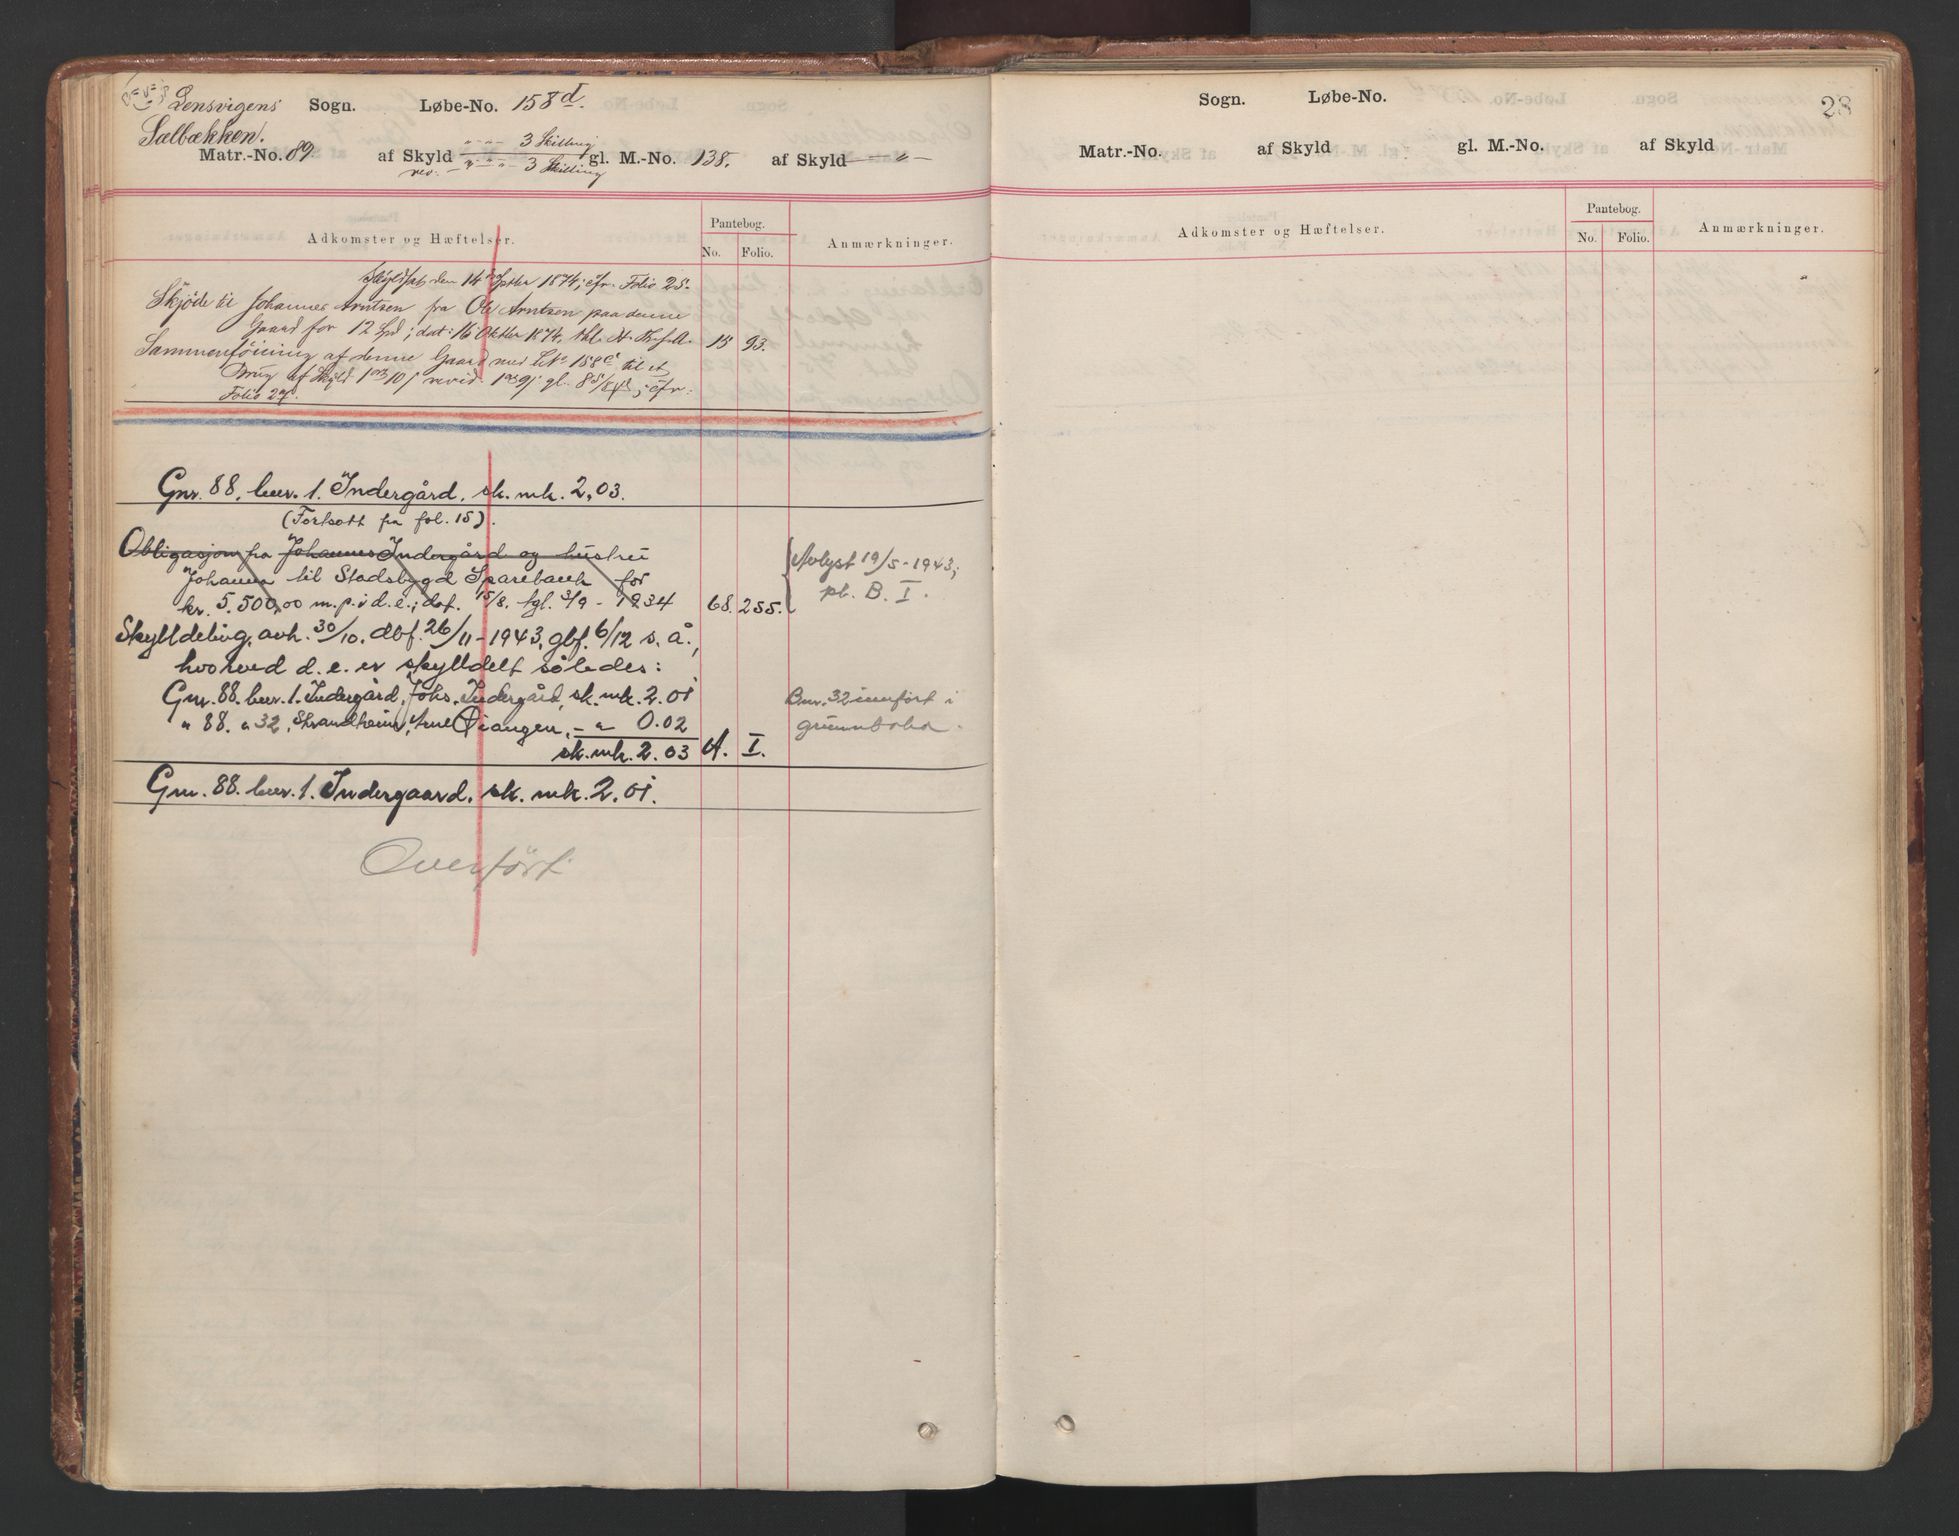 Lensvigens Sogn. Løbe-No. 158d.
Sælbækken.
Matr.-No. 89 af Skyld " - " - 3 Skilling gl. M.-No. 138. af Skyld — " —
rev. - " - " - 3 Skilling
Adkomster og Hæftelser.
Pantebog.
No. Folio.
Anmærkninger.
Skyldsat den 14de Septbr 1874; cfr. Folio 25.
Skjøde til Johannes Arntsen fra Ole Arntsen paa denne
Gaard for 12 Spd; dat: 16 Oktbr 1874, 15 93.
Sammenføining af denne Gaard med 158c til et
Brug af Skyld 1 10; revid. 1 9; gl. ; cfr:
Folio 27.
Gnr. 88. bnr. 1. Indergård. sk. mk. 2,03.
(Fortsatt fra fol. 15).
Obligasjon fra Johannes Indergård og hustru
Johanna til Stadsbygd Sparebank for
kr. 5.500,00 m. p. i d. e.; dat. 15/8. tgl. 3/9 - 1934 68. 255.
Avlyst 19/5-1943;
pb. B. I.
Skylldeling, avh. 30/10. dbf. 26/11-1943, gbf. 6/12 s. å.,
hvorved d. e. er skylldelt således:
Gnr. 88. bnr. 1. Indergård, Johs. Indergård, sk. mk. 2.01
" 88. " 32, Strandheim, Arne Øiangen, - " 0.02
sk. mk. 2.03 A. I.
Bnr. 32 innført i
grunnboka.
Gnr. 88. bnr. 1. Indergaard. sk. mk. 2,01.
Overført.
28
Sogn. Løbe-No.
Matr.-No. af Skyld gl. M.-No. af Skyld
Adkomster og Hæftelser.
Pantebog.
No. Folio.
Anmærkninger.